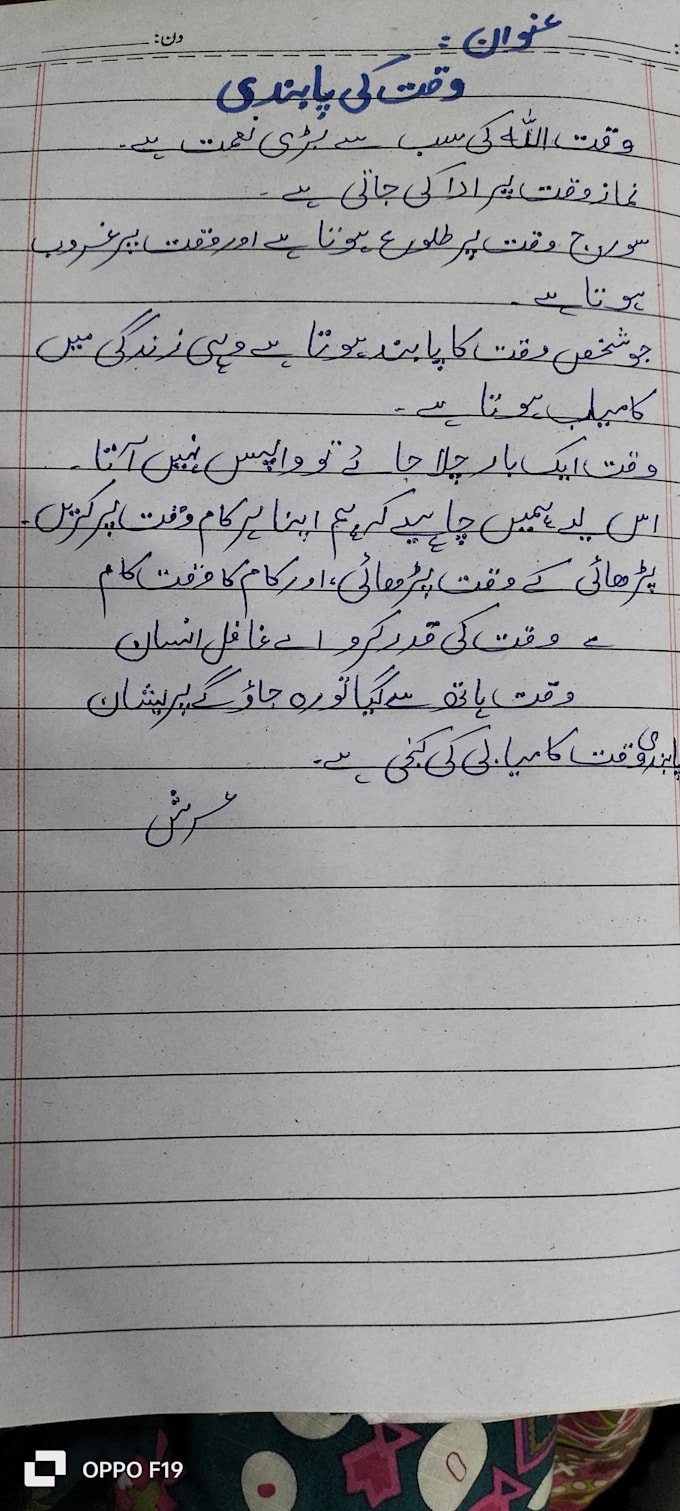 دن:
عنوان :
وقت کی پابندی
وقت اللہ کی سب سے بڑی نعمت ہے۔
نماز وقت پر ادا کی جاتی ہے۔
سورج وقت پر طلوع ہوتا ہے اور وقت پر غروب
ہوتا ہے۔
جو شخص وقت کا پابند ہوتا ہے وہی زندگی میں
کامیاب ہوتا ہے۔
وقت ایک بار چلا جائے تو واپس نہیں آتا۔
اس لیے ہمیں چاہیے کہ ہم اپنا ہر کام وقت پر کریں۔
پڑھائی کے وقت پڑھائی، اور کام کا وقت کام
؎ وقت کی قدر کرو اے غافل انسان
وقت ہاتھ سے گیا تو رہ جاؤ گے پریشان
پابندی وقت کامیابی کی کنجی ہے۔
عرش
OPPO F19